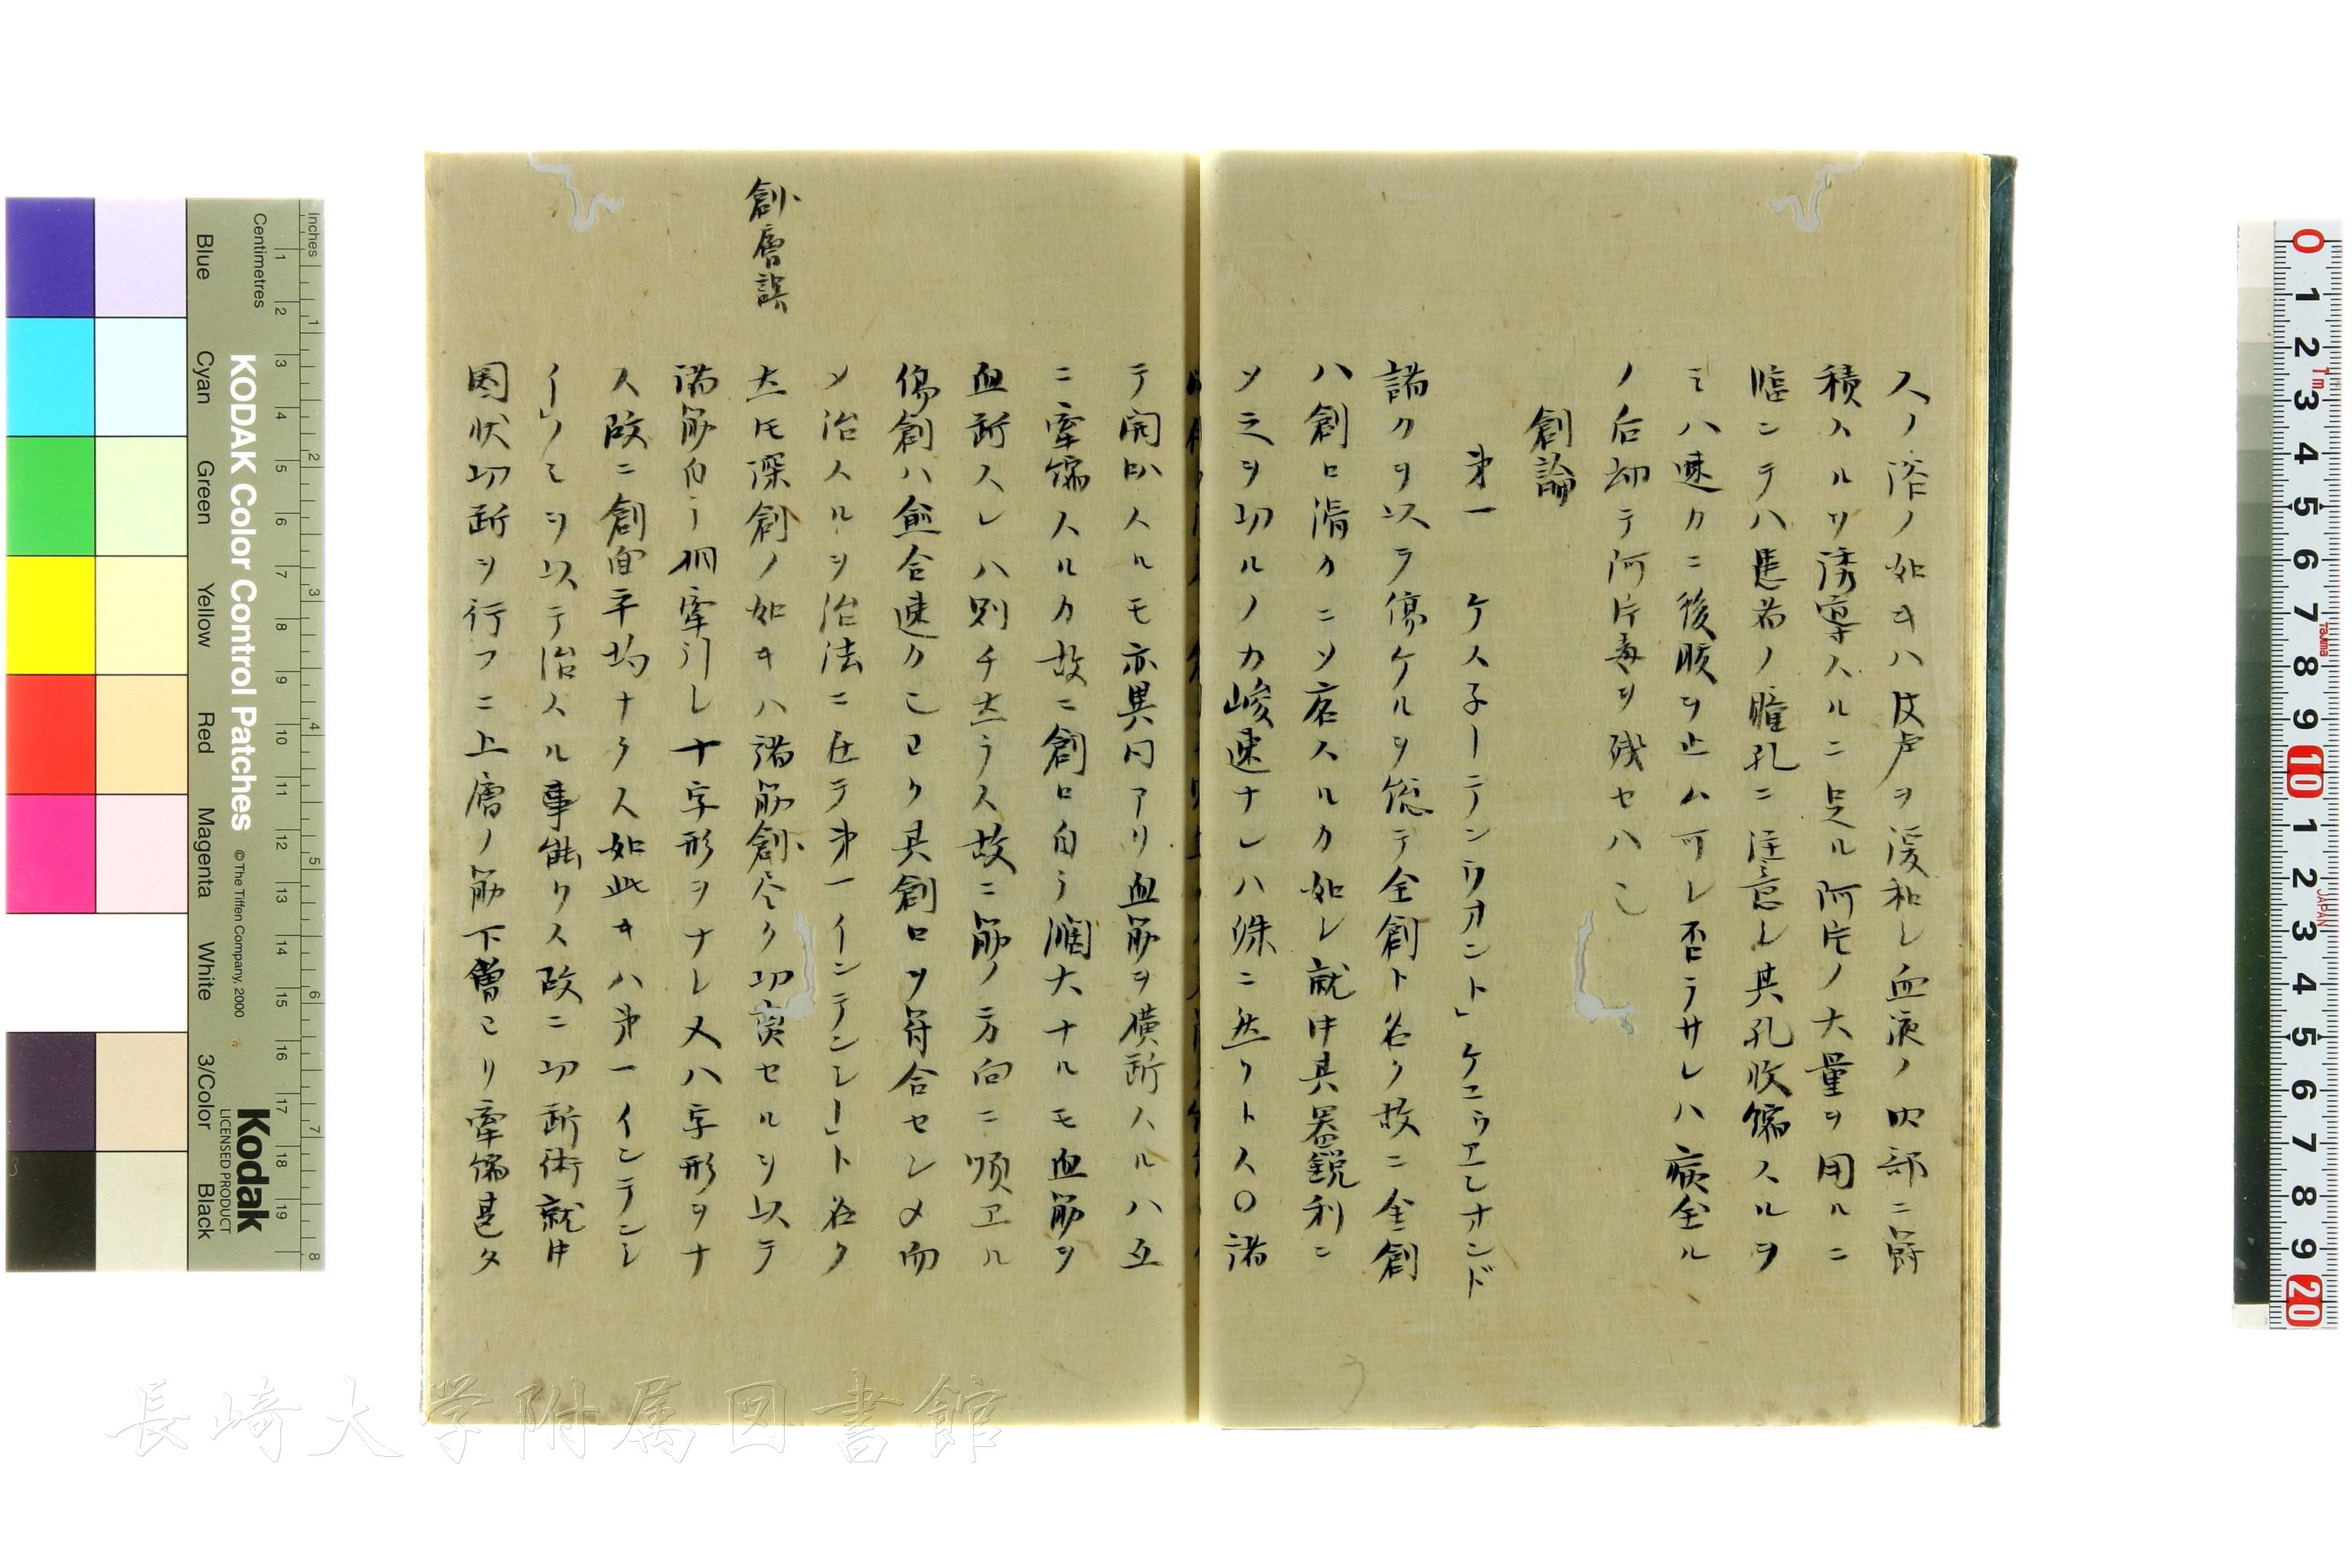 スノ浴ノ如キハ皮虍ヲ溭和シ血液ノ内部ニ欝
積スルヲ誘導スルニ足ル阿片ノ大量ヲ用ルニ
臨ンテハ患者ノ瞳孔ニ注意シ其孔收縮スルヲ
ミハ速カニ後服ヲ止ム可シ否ラサレハ病全ル
ノ后却テ阿片毒ヲ残セハ也
創論
第一 ケスネーテンウオント」ケニウエレオンド
諸クヲ以ラ傷ケルヲ総テ金創ト名ク故ニ金創
ハ創口滑カニソ店スルカ如シ就中其器鋭利ニ
ソ之ヲ切ルノカ峻速ナレハ殊ニ然リトス〇諸
テ開口スルモ亦異同アリ血筋ヲ横断スルハ互
ニ牽縮スルカ故ニ創口自ラ濶大ナルモ血筋ヲ
血断スレハ則チ去ラス故ニ筋ノ方向ニ順ヱル
傷創ハ愈合速カ也ヨク具創口ヲ符合セシメ而
メ治スルヲ治法ニ在テ第一インテンシー」ト名ク
去トモ深創ノ如キハ諸筋創尽ク切裂セルヲ以テ
諸筋自ラ相牽引シ十字形ヲナシ又八字形ヲナ
ス故ニ創面平均ナラス如此キハ第一インテンシ
ー」ノミヲ以テ治スル事能ワス故ニ切断術就中
圓状切断ヲ行フニ上層ノ筋下層ヨリ牽縮甚タ
創層誤
KODAK Color Control Patches
© The Tiffen Company, 2000
Kodak
LICENSED PRODUCT
Inches
Centimetres
Blue Cyan Green Yellow Red Magenta White 3/Color Black
長崎大学附属図書館